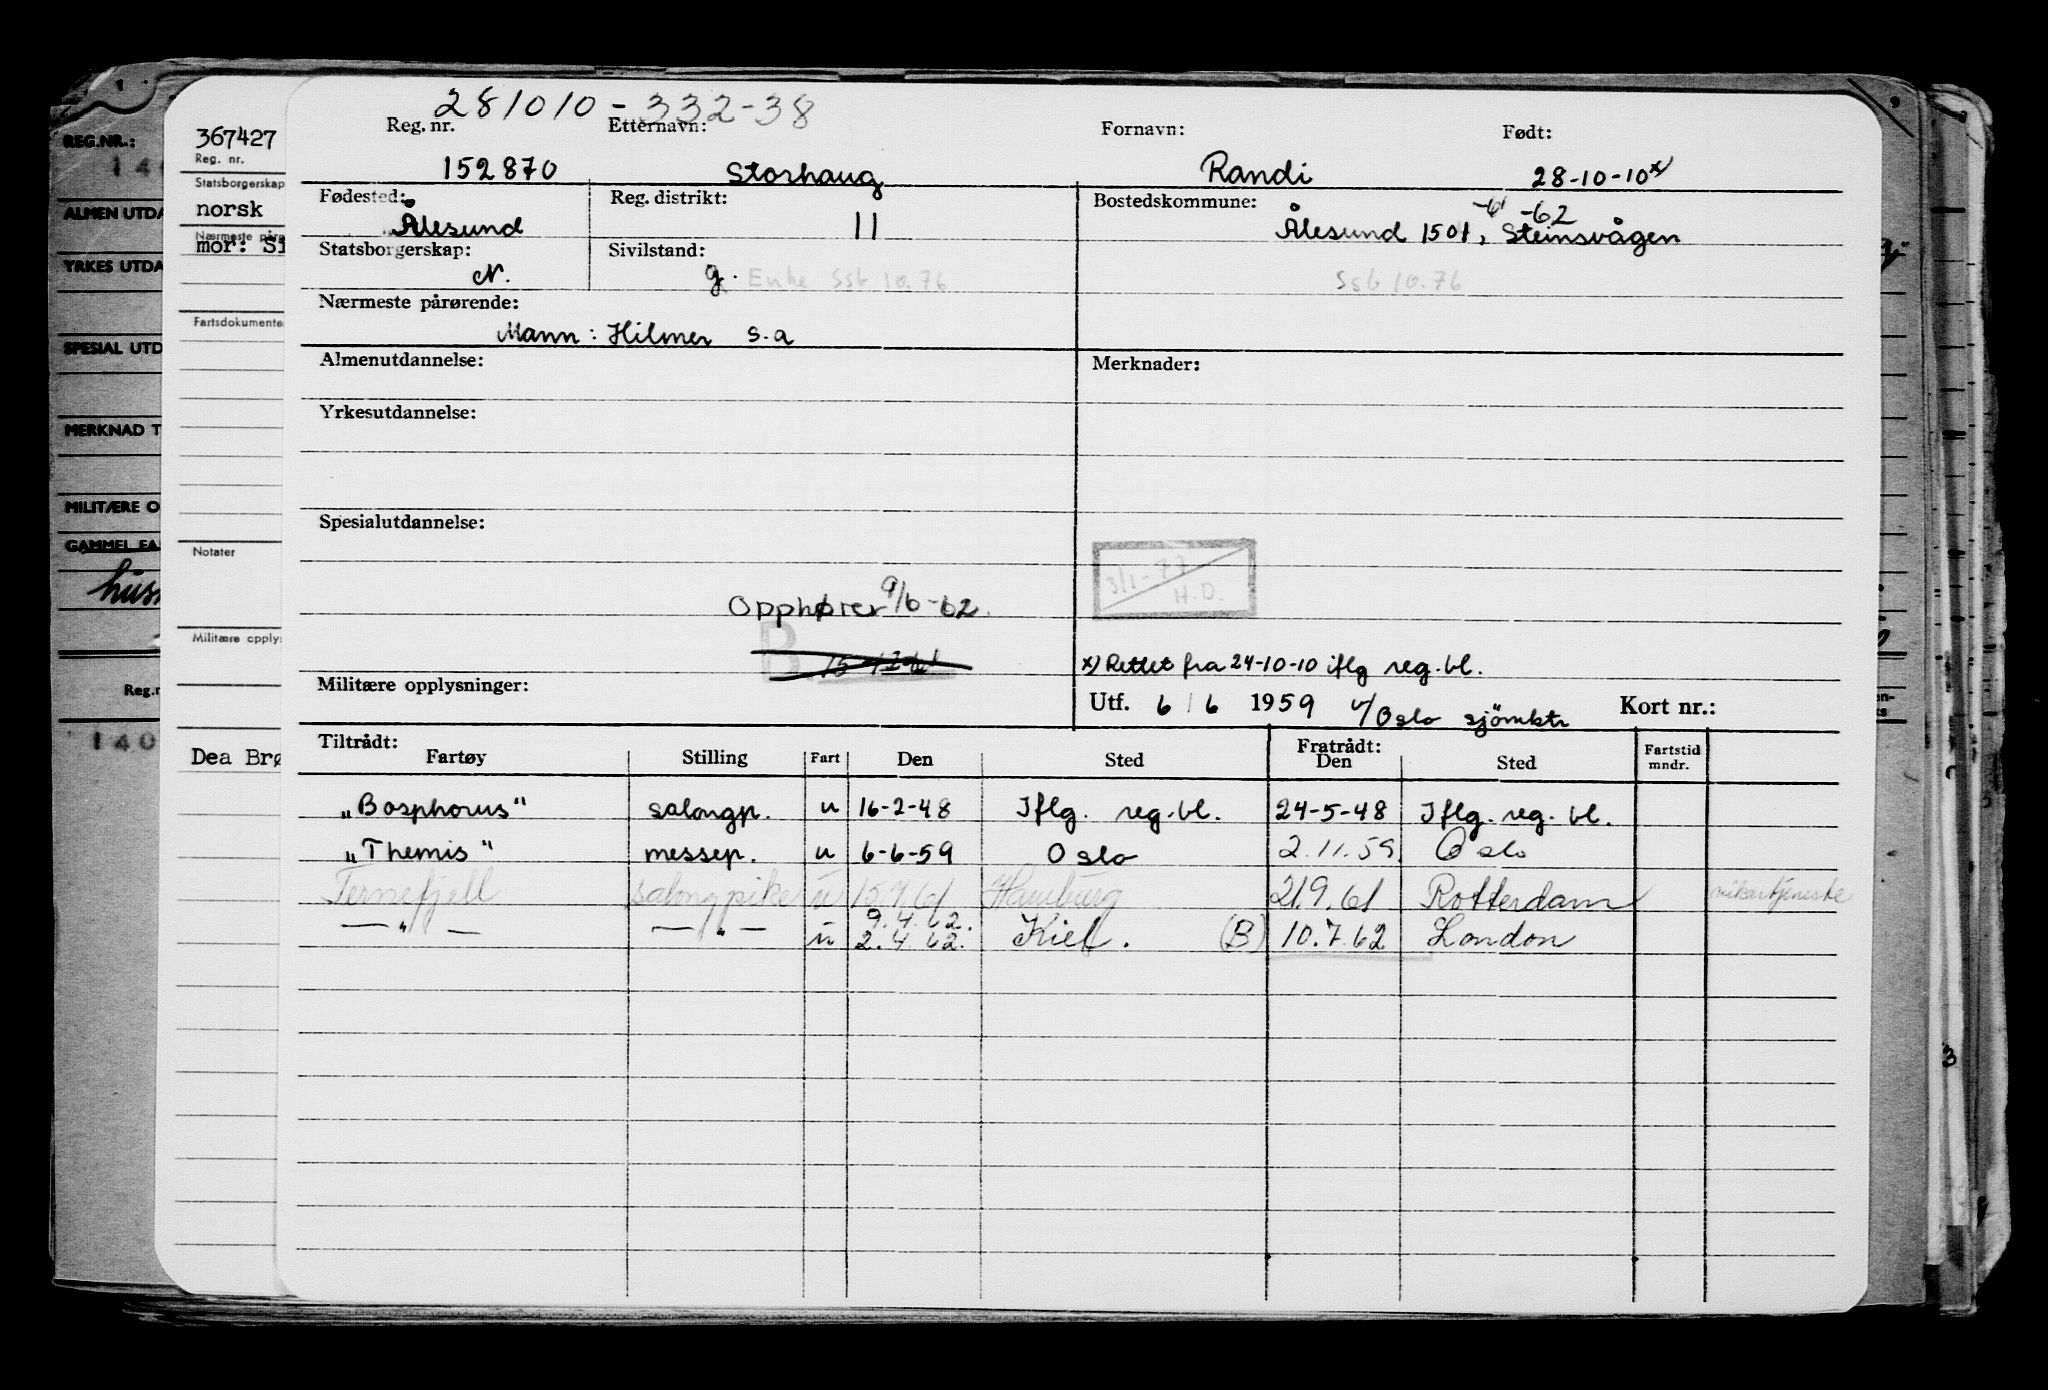 281010-332-38
Reg. nr. Etternavn: Fornavn: Født:
152870 Storhaug Randi 28-10-10 x)
Fødested: Reg. distrikt: Bostedskommune:
Ålesund 11 Ålesund 1501, -61 -62 Steinsvågen
Statsborgerskap: Sivilstand:
N. g. Enke Ssb 10.76 Ssb 10.76
Nærmeste pårørende:
Mann: Hilmer s.a
Almenutdannelse: Merknader:
Yrkesutdannelse:
Spesialutdannelse:
3/1-77
H.D.
Opphører 9/6-62.
B
x) Rettet fra 24-10-10 iflg reg.bl.
Militære opplysninger:
Utf. 6/6 1959 v/Oslo sjömktr Kort nr.:
Tiltrådt: Fratrådt:
Fartøy Stilling Fart Den Sted Den Sted Fartstid mndr.
"Bosphorus" salongp. u 16-2-48 Iflg. reg.bl. 24-5-48 Iflg. reg. bl.
"Themis" messep. u 6-6-59 Oslo 2.11.59 Oslo
Ternefjell salongpike u 15.7.61 Hamburg 21.9.61 Rotterdam
9.4.62.
— " — — " — u 2.4.62. Kiel. (B) 10.7.62 London
367427
Reg. nr.
Statsborgerskap
norsk
Nærmeste påre
mor: Si
Fartsdokumente
Notater
Militære opplys
Dea Brø
REG.NR.:
140
ALMEN UTDA
YRKES UTDA
SPESIAL UTD
MERKNAD T
MILITÆRE O
GAMMEL FA
hus
Reg.n
140
3